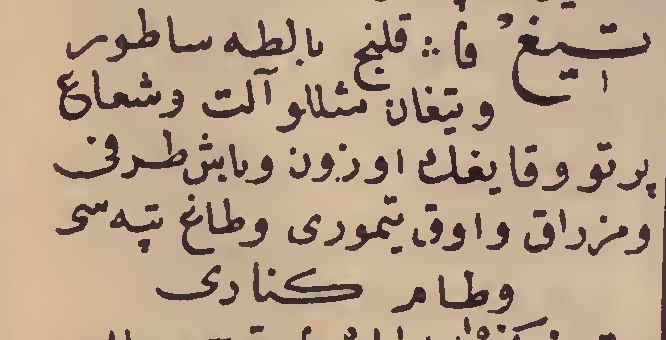 تيغ فا قلنج بالطه ساطور
ويتغان مثللو آلت وشعاع
پرتو وقايغك اوزون وباش طرفی
ومزراق واوق يتموری وطاغ تپه سی
وطام كناری